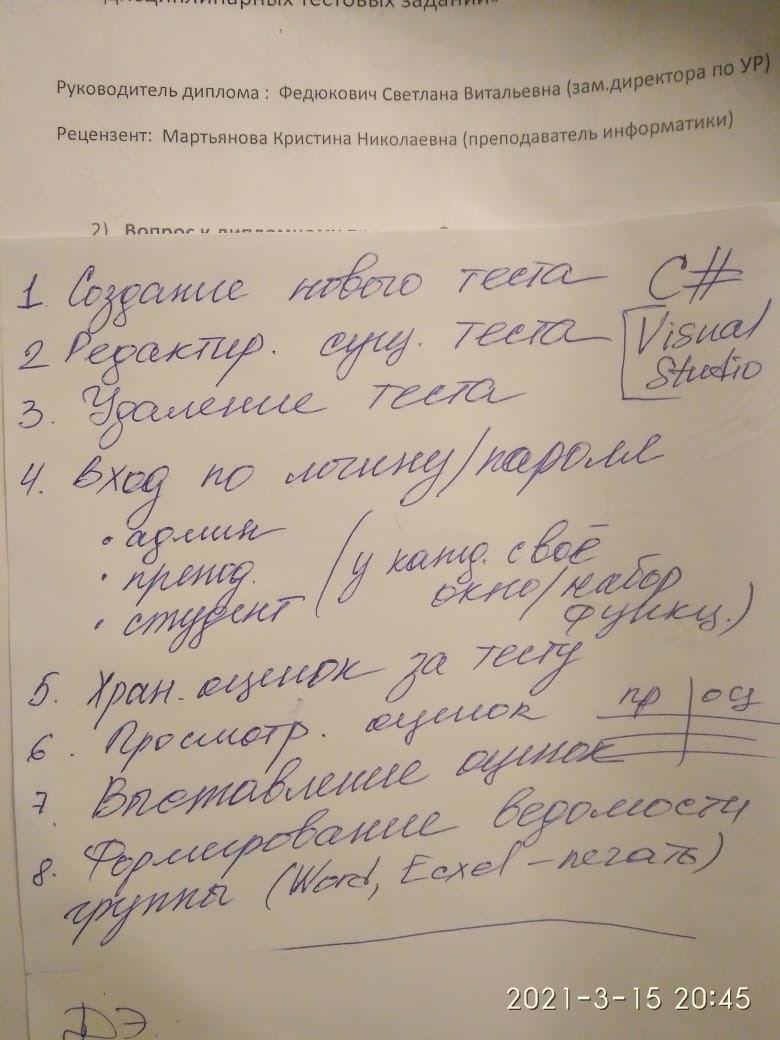 дисциплинарных тестовых заданий»
Руководитель диплома : Федюкович Светлана Витальевна (зам.директора по УР)
Рецензент: Мартьянова Кристина Николаевна (преподаватель информатики)
2) Вопрос к дипломному
1. Создание нового теста C#
2 Редактир. сущ. теста Visual
Studio
3. Удаление теста
4. Вход по логину/пароля
• админ
• препод. (у кажд. своё
• студент окно/набор
функц.)
5. Хран. оценок за тесту
6. Просмотр. оценок пр | оц
7 Выставление оценок
8. Формирование ведомости
группы (Word, Ecxel – печать)
ДЭ.
2021-3-15 20:45